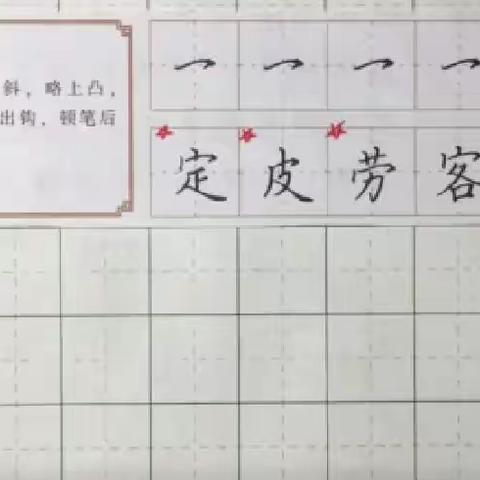 斜，略上凸，
出钩，顿笔后
定皮劳客